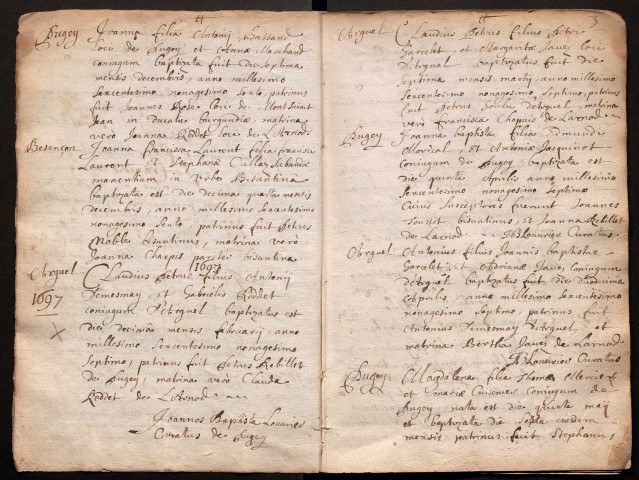 Bugey Joanna filia Antonij
loci de Bugey et Annæ Marchand
coniugum baptizata fuit die septima
mensis decembris, anno millesimo
sexcentesimo nonagesimo sexto, patrinus
fuit Joannes Rose loci de Montsainct
Jean in Ducatu burgundiæ, matrina
vero Joanna Reddet loci de
Besançon Joanna Francisca Laurent filia francisci
Laurent et Stephanæ Cullaz Sabaudiæ
manentium in Urbe Bisuntina
baptizata est die decima quarta mensis
decembris, anno millesimo sexcentesimo
nonagesimo sexto, patrinus fuit Petrus
Noble bisuntinus, matrina vero
Joanna Chapis pariter bisuntina
1697
Arguel Claudius Petrus filius Antonij
1697 Demesmay, et Gabrielis Reddet
coniugum d'Arguel baptizatus est
die decima mensis februarij, anno
millesimo sexcentesimo nonagesimo
septimo, patrinus fuit Petrus Robillot
de Bugey, matrina vero Clauda
Reddet de Larnod
Joannes Baptista Louvrier
Curatus de Bugey
3
Arguel Claudius Petrus filius Petri
Garrelet, et Margaritæ Javel loci
d'Arguel baptizatus fuit die
septima mensis martij anno millesimo
sexcentesimo nonagesimo septimo, patrinus
fuit Petrus d'Arguel, matrina
vero Francisca Chapuis de Larnod
Bugey Joanna baptista filia Edmundi
et Antoniæ Jacquinot
coniugum de Bugey baptizata est
die quinta Aprilis anno millesimo
sexcentesimo nonagesimo septimo
Cuius susceptores fuerunt Joannes
bisuntinus, et Joanna Robillot
de Larnod JBLouvrier Curatus
Arguel Antonius filius Joannis baptistæ
Garrelet, et Adrianæ Javel coniugum
d'Arguel baptizatus fuit die duodecima
Aprilis, anno millesimo sexcentesimo
nonagesimo septimo, patrinus fuit
Antonius Demesmay d'Arguel, et
matrina Bertha Javel de Larnod
JBLouvrier Curatus
Bugey Magdalena filia Thomæ
et coniugum de
Bugey nata est die quinta maij
et baptizata die sexta eiusdem
mensis patrinus fuit Stephanus